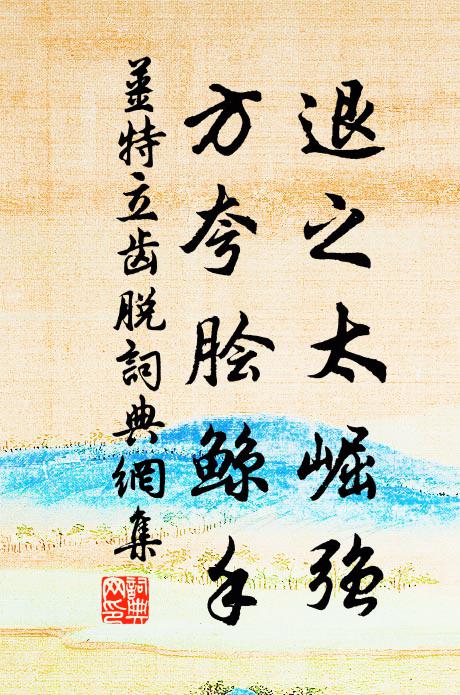 退之太崛强
方夸脍鲸手
薑特立齿脱詞典網集
詞典
网印